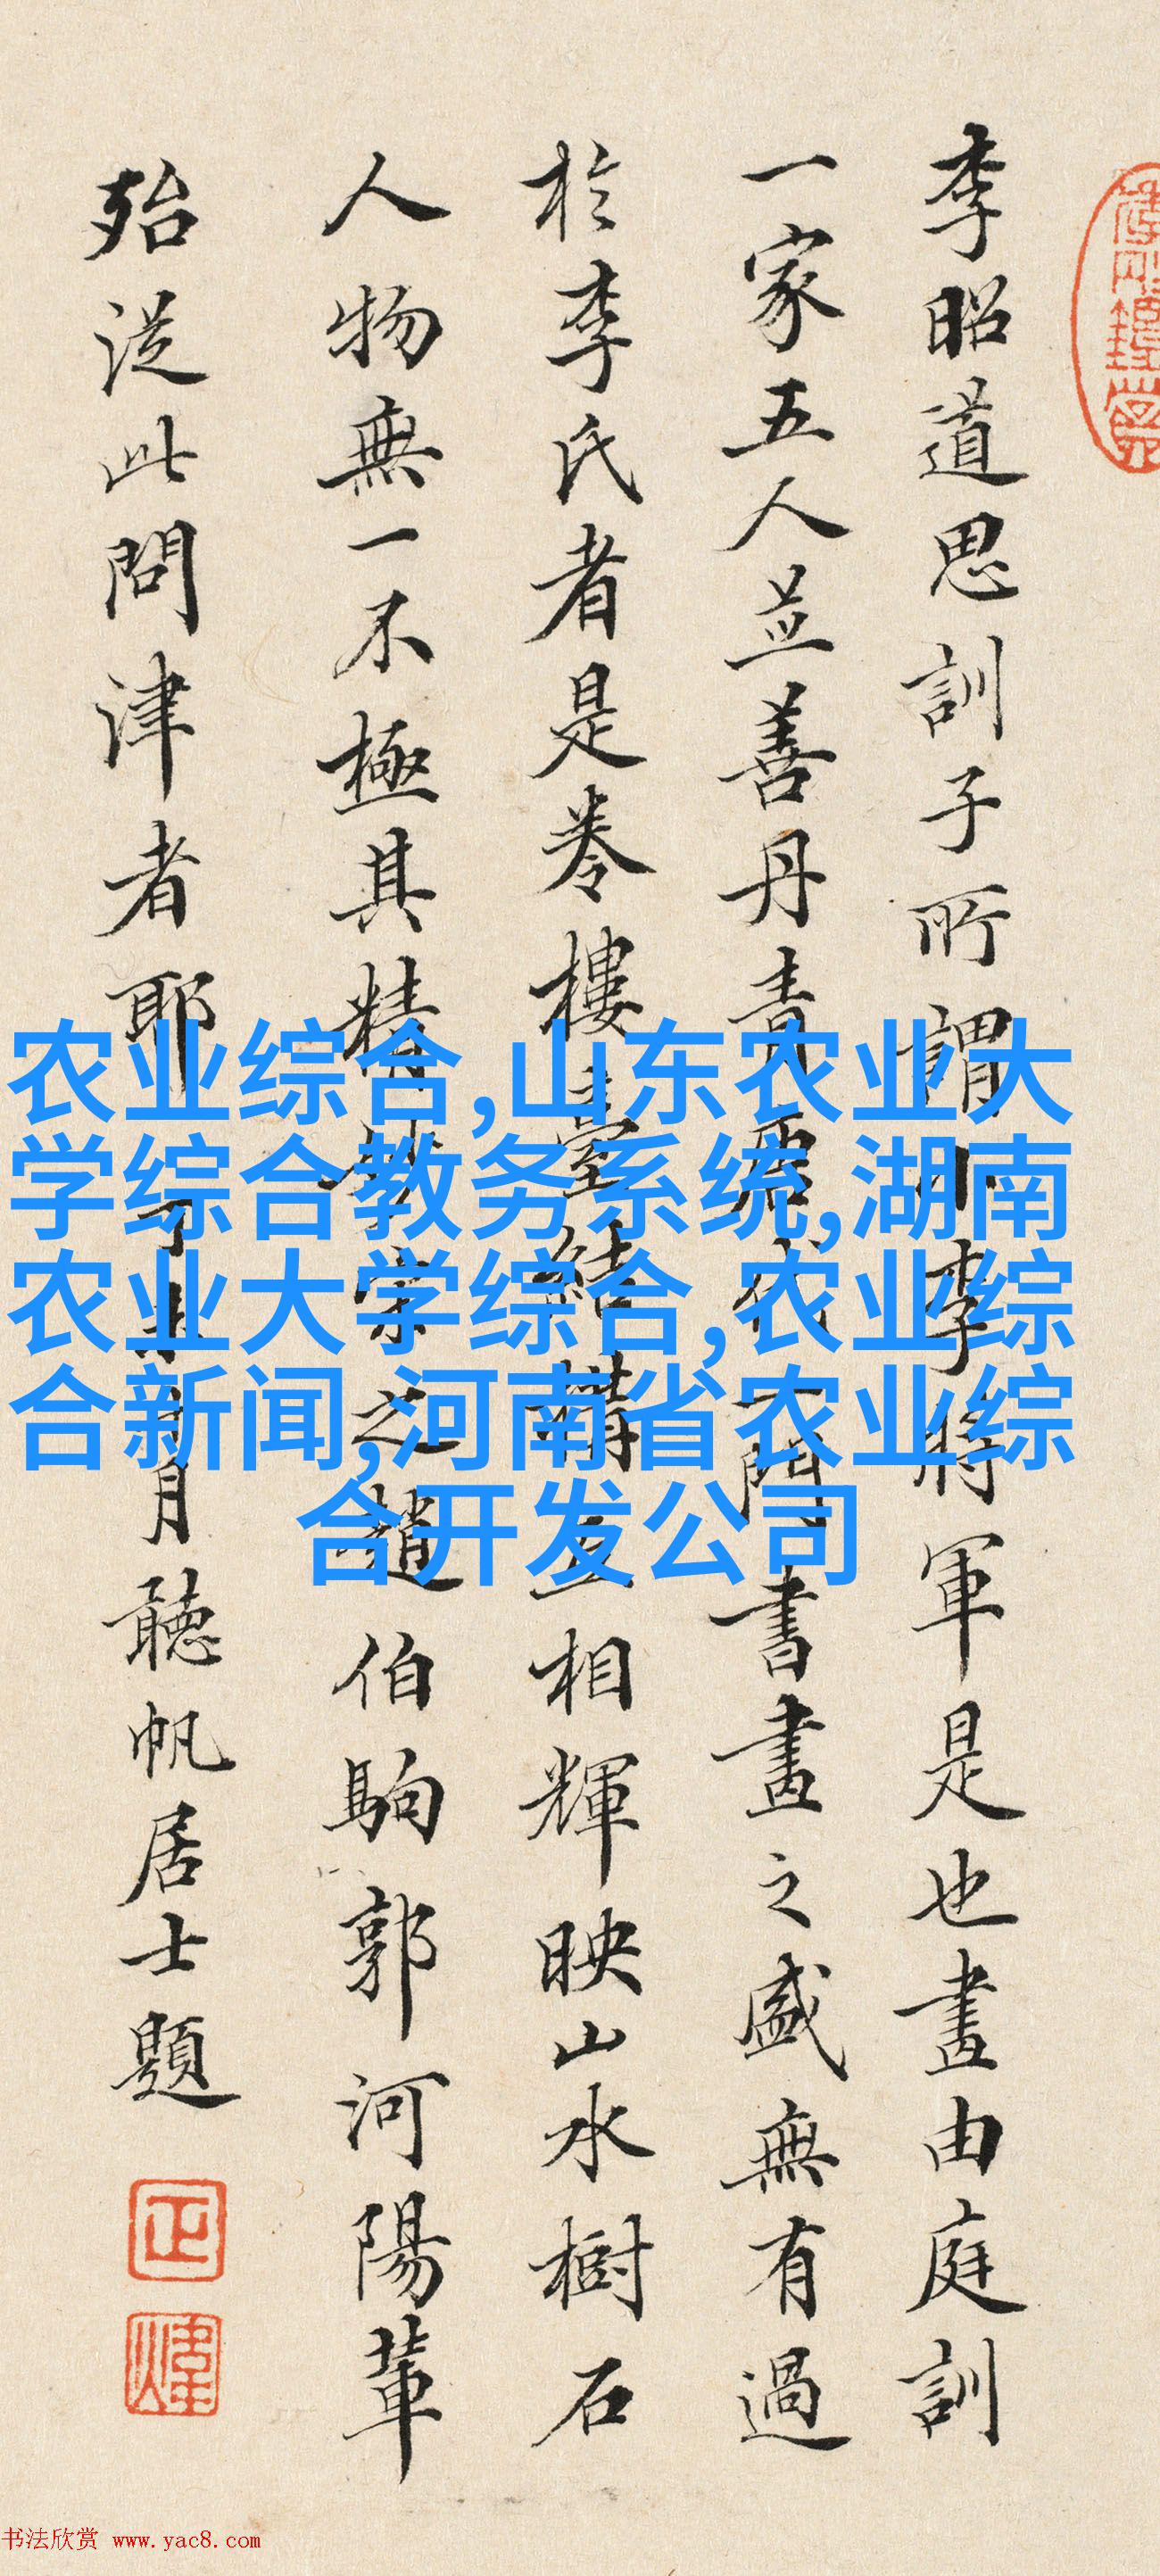 李昭道思訓子所謂小李將軍是也畫由庭訓
一家五人並善丹青
書畫之盛無有過
於李氏者是卷樓臺結構互相輝映山水樹石
人物無一不極其精
之趙伯駒郭河陽輩
殆從此問津者耶
月聽帆居士題
农业综合,山东农业大
学综合教务系统,湖南
农业大学综合,农业综
合新闻,河南省农业综
合开发公司
书法欣赏 www.yac8.com